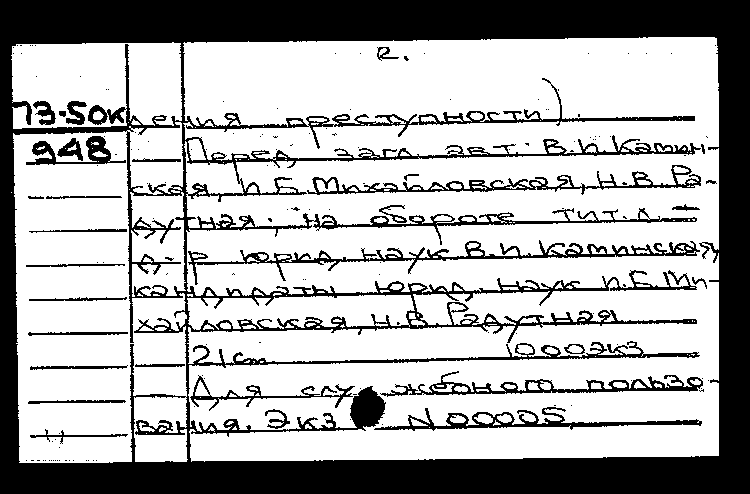 2.
73-50к дения преступности).
948 Перед загл. авт.: В.И.Камин-
ская, И.Б.Михайловская, Н.В.Ра-
дутная; на обороте тит.л. -
д-р юрид. наук В.И.Каминская,
кандидаты юрид. наук И.Б.Ми-
хайловская, Н.В.Радутная
21cm 1000экз
Для служебного пользо-
вания. Экз N 00005